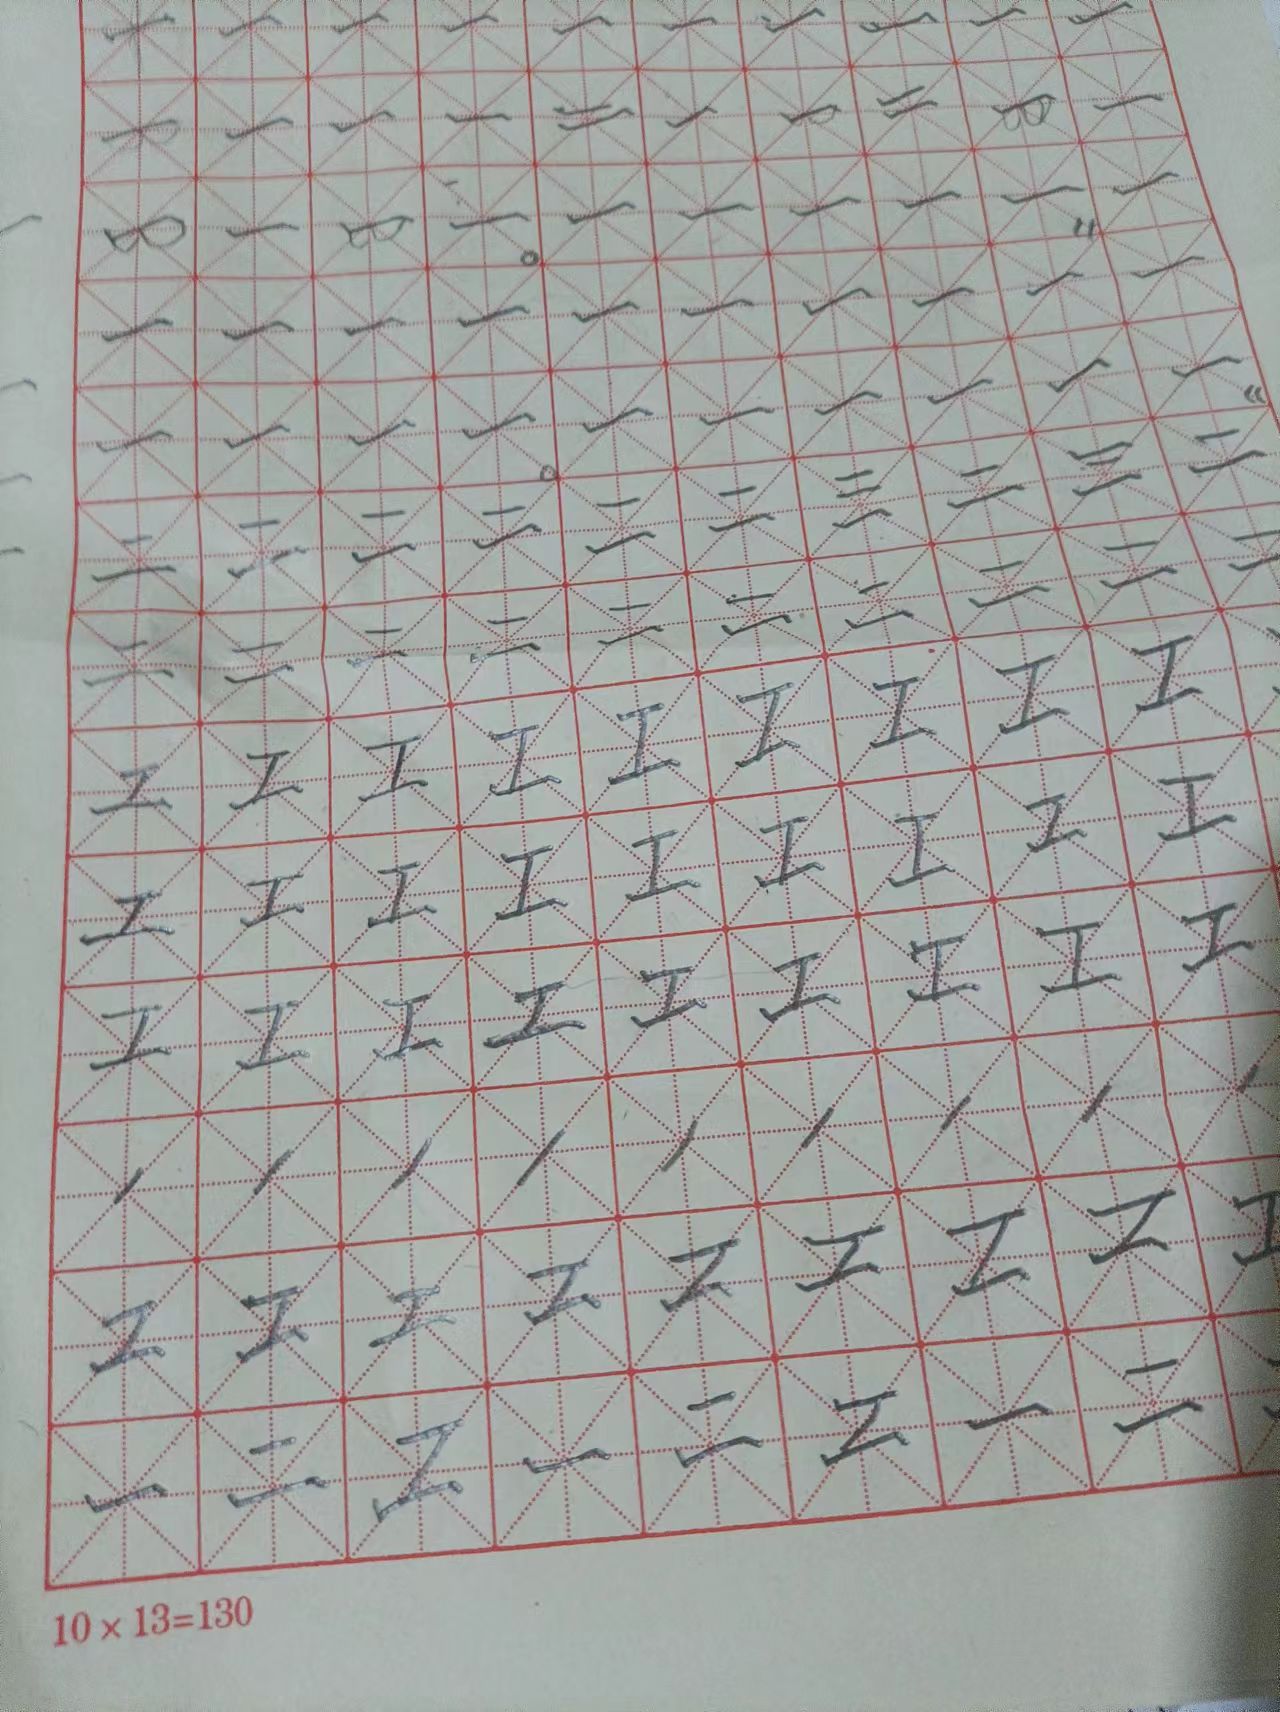 一 一 一 一 一 一 一 一 一 一
一 一 一 一 二 一 一 二 一 一
一 一 一 一 一 一 一 一 一 一
一 一 一 一 一 一 一 一 一 一
一 一 一 一 一 一 一 一 一 一
二 二 二 二 二 二 三 二 三 二
二 二 二 二 二 二 二 二 二 二
工 工 工 工 工 工 工 工 工
工 工 工 工 工 工 工 工 工
工 工 工 工 工 工 工 工 工
丿 丿 丿 丿 丿 丿 丿 丿 丿
工 工 工 工 工 工 工 工 工
一 二 工 一 二 工 一 二
10×13=130